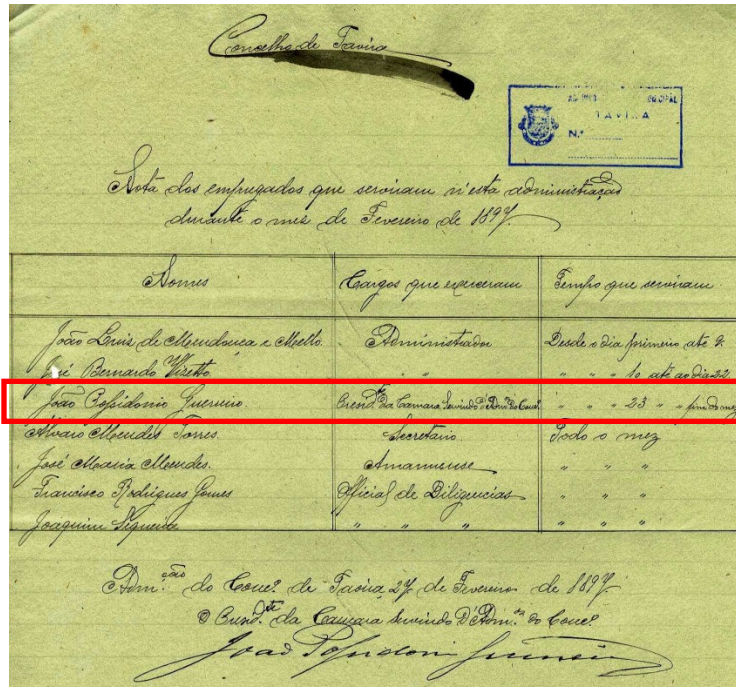 Concelho de Tavira
TAVIRA
N.º
Nota dos empregados que serviram n'esta administração
durante o mez de Fevereiro de 1897
Nomes Cargos que exerceram Tempo que serviram
João Luis de Mendonça e Mello. Administrador Desde o dia primeiro até 9.
José Bernardo Vizetto " " " " 10 até ao dia 22
João Possidonio Guerreiro Presid.te da Camara Servindo d'Adm.or do Conc.º " " " 23 " " fim do mez
Alvaro Mendes Torres. Secretario. Todo o mez
José Maria Mendes. Amanuense " " "
Francisco Rodrigues Gomes Official de Diligencias " " "
Joaquim Sequeira " " " " " "
Adm.ção do Conc.º de Tavira, 27 de Fevereiro de 1897
O Presid.te da Camara Servindo D'Adm.or do Conc.º
João Possidonio Guerreiro